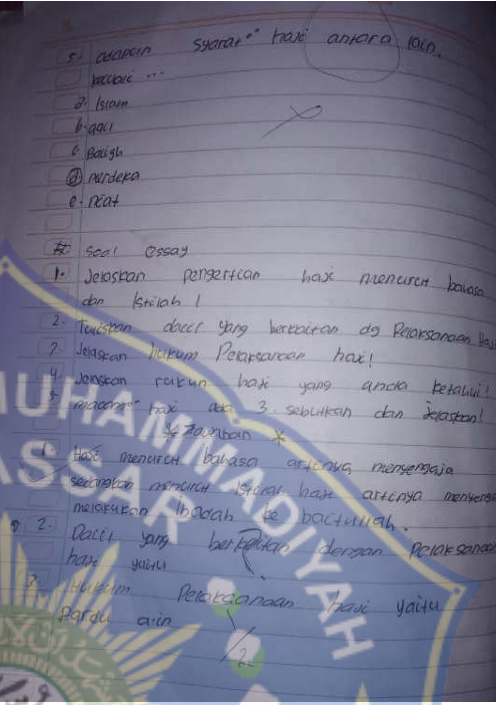 5. adapun syarat" haji antara lain,
kecuali ...
a. Islam
b. aqil
c. Baligh
d. merdeka
e. niat
# Soal essay
1. Jelaskan pengertian haji menurut bahasa
dan Istilah !
2. Tuliskan dalil yang berkaitan dg Pelaksanaan Haji
3. Jelaskan hukum Pelaksanaan haji!
4. Jelaskan rukun haji yang anda ketahui!
5. macam" haji ada 3. sebutkan dan Jelaskan!
* Jawaban *
1. Haji menurut bahasa artinya menyengaja
sedangkan menurut Istilah haji artinya menyengaja
melakukan Ibadah ke baitullah.
2. Dalil yang berkaitan dengan Pelaksanaan
haji yaitu
3. Hukum Pelaksanaan haji yaitu
Pardu ain
1/2
MUHAMMADIYAH
ASSAR